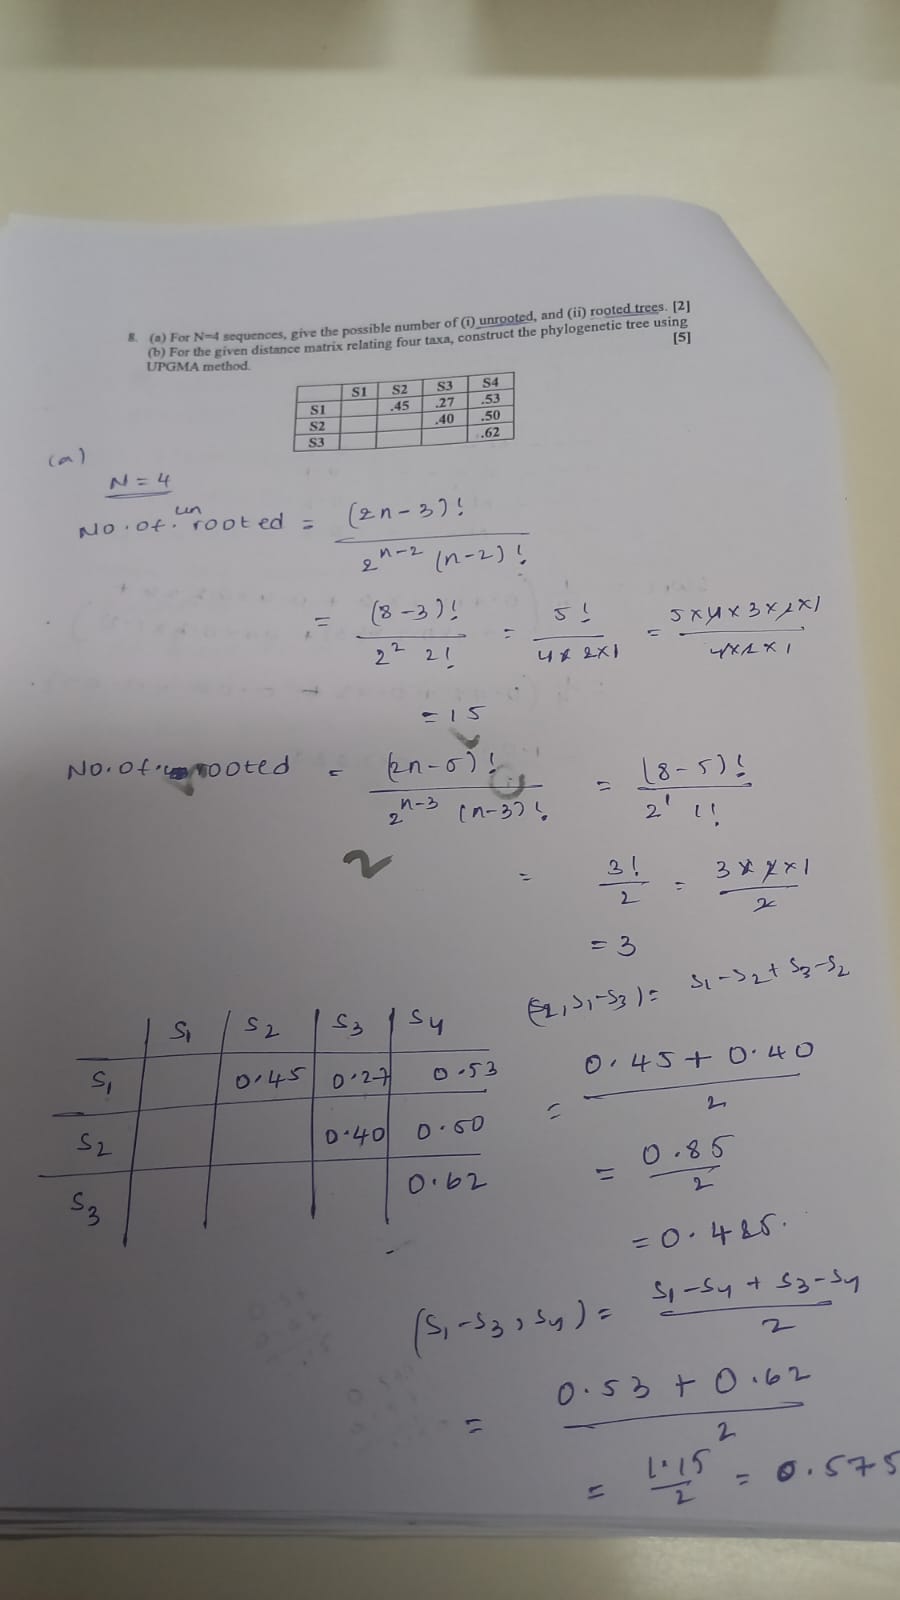 8. (a) For N=4 sequences, give the possible number of (i) unrooted, and (ii) rooted trees. [2]
(b) For the given distance matrix relating four taxa, construct the phylogenetic tree using
UPGMA method. [5]
S1 S2 S3 S4
S1 .45 .27 .53
S2 .40 .50
S3 .62
(a)
N = 4
No. of. un rooted = (2n-3)! / 2^n-2 (n-2)!
= (8-3)! / 2^2 2! = 5! / 4x 2x1 = 5x4x3x2x1 / 4x2x1
= 15
No. of. rooted = (2n-5)! / 2^n-3 (n-3)! = (8-5)! / 2^1 1!
2
= 3! / 2 = 3x2x1 / 2
= 3
S1 S2 S3 S4
S1 0.45 0.27 0.53
S2 0.40 0.50
S3 0.62
(S2, S1-S3) = S1-S2 + S3-S2
= 0.45 + 0.40 / 2
= 0.85 / 2
= 0.425.
(S1-S3, S4) = S1-S4 + S3-S4 / 2
= 0.53 + 0.62 / 2
= 1.15 / 2 = 0.575